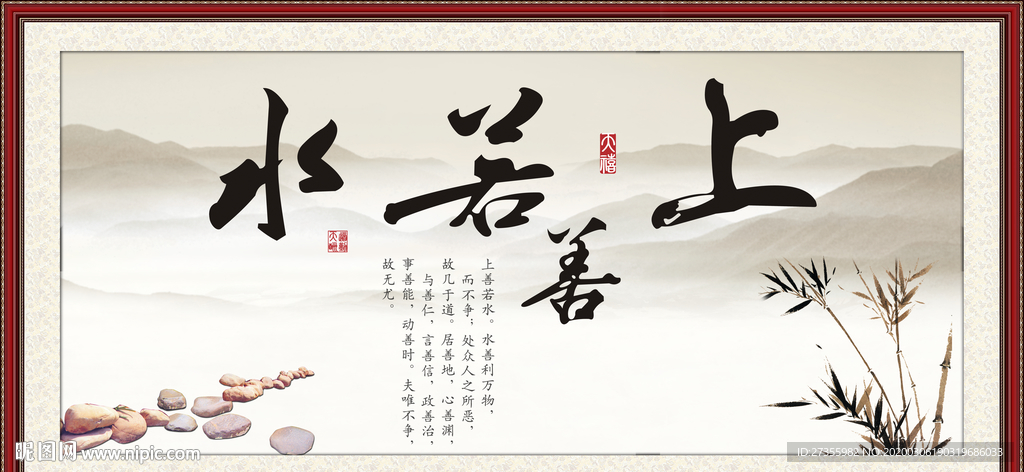 上善若水
上善若水。水善利万物，
而不争；处众人之所恶，
故几于道。居善地，心善渊，
与善仁，言善信，政善治，
事善能，动善时。夫唯不争，
故无尤。
昵图网 www.nipic.com
ID:27355982 NO:20200306190319686033